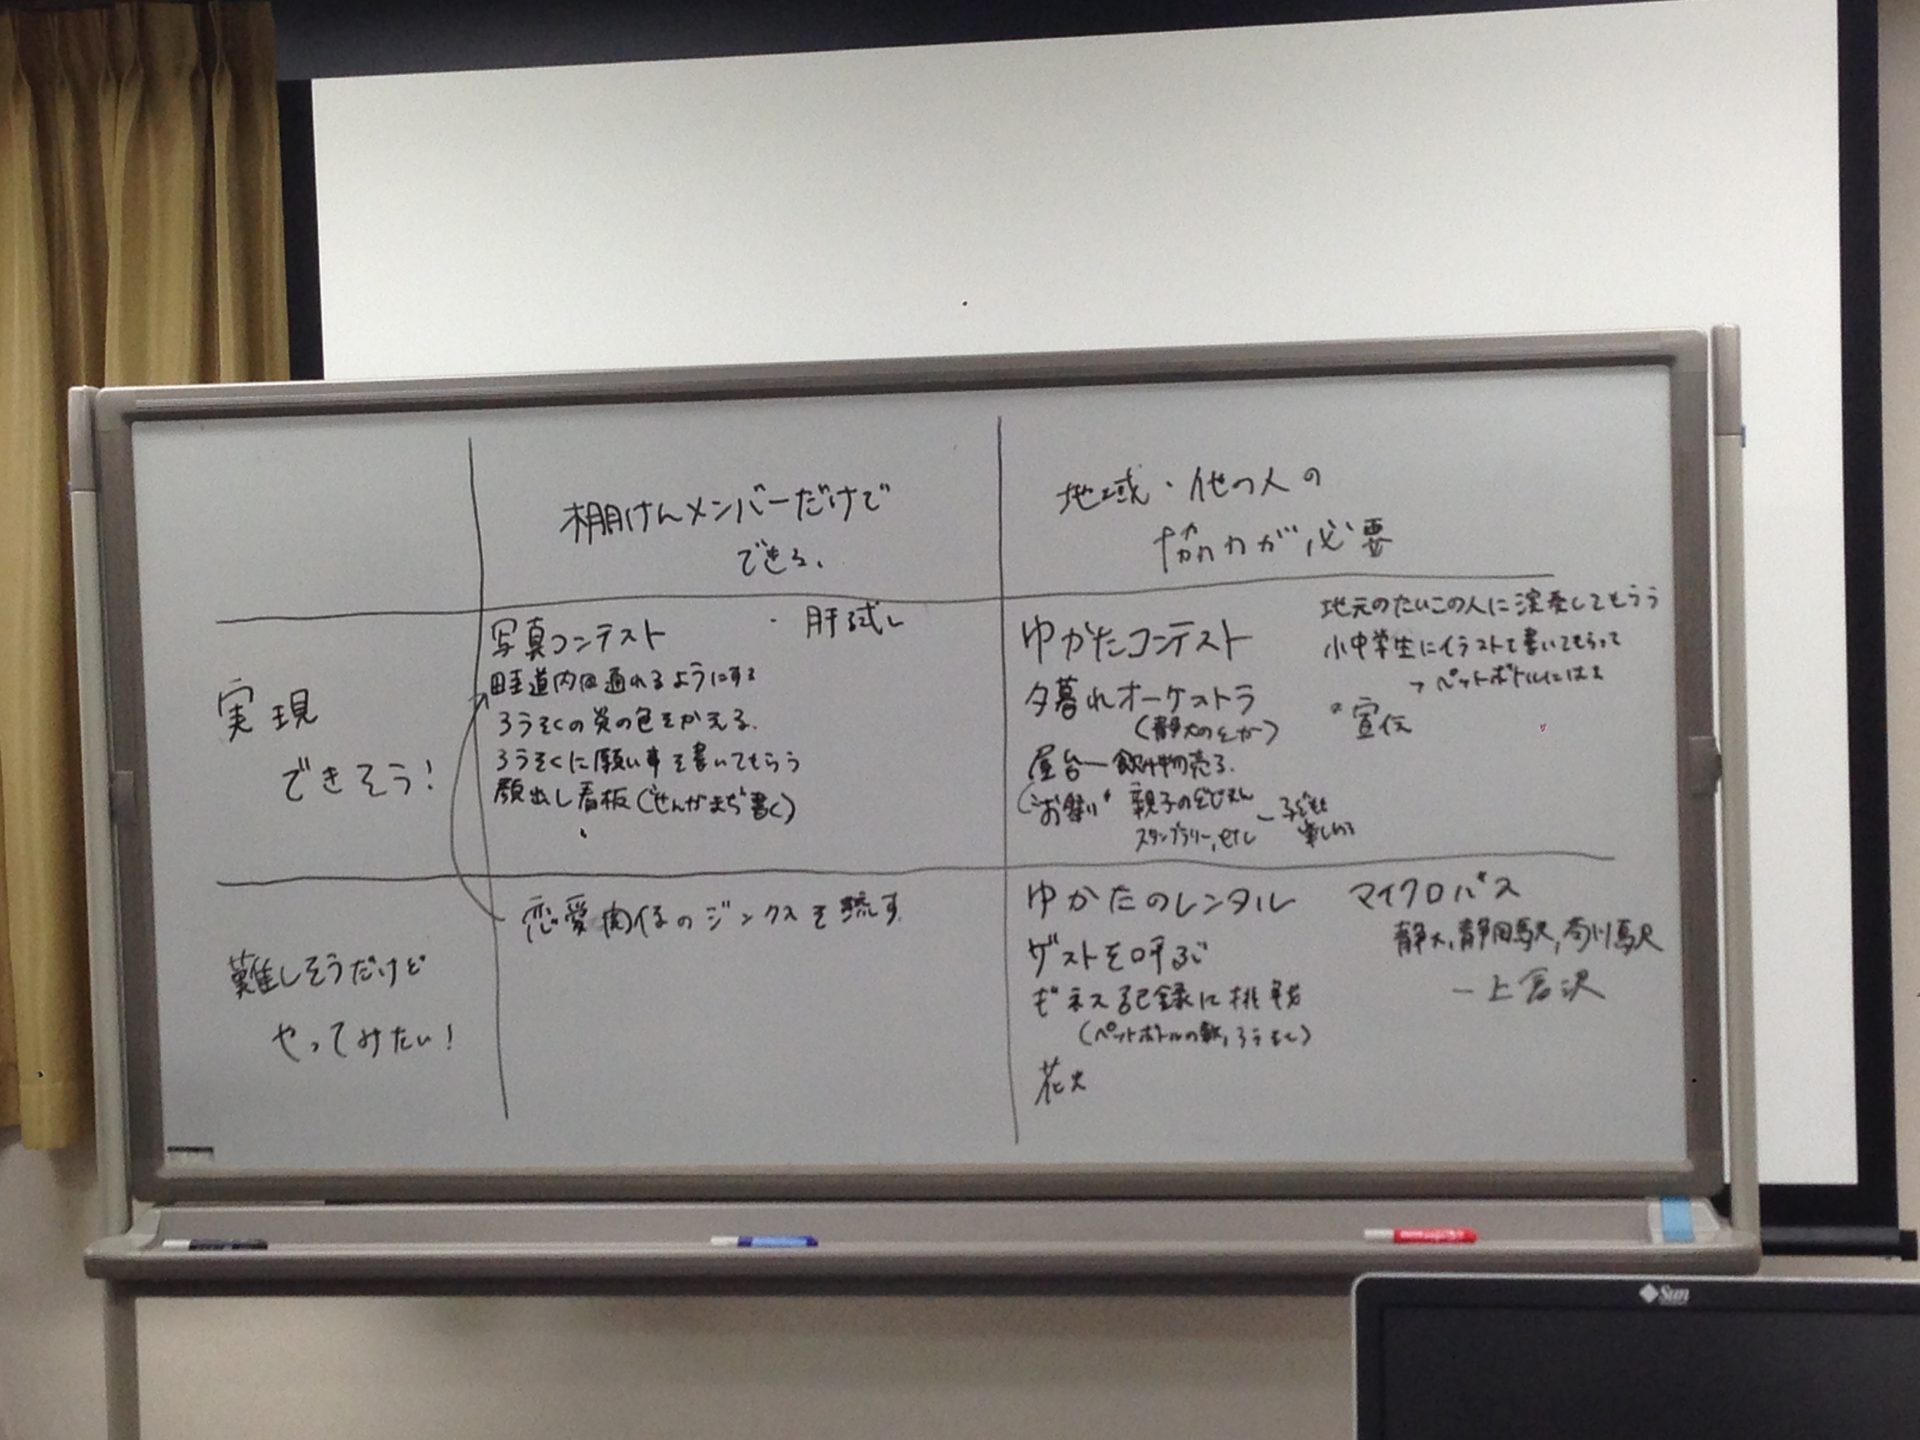 棚けんメンバーだけで
できる、
地域・他の人の
協力が必要
実現
できそう!
写真コンテスト
・肝試し
畦道内回通れるようにする
ろうそくの炎の色をかえる.
ろうそくに願い事を書いてもらう
顔出し看板(せんがまち書く)
ゆかたコンテスト
夕暮れオーケストラ
(静大のとか)
屋台ー飲み物売る.
("お祭り" 親子の
スタンプラリー, etc
ー子ども
楽しめる
地元のたいこの人に演奏してもらう
小中学生にイラストを書いてもらって
→ペットボトルにはる
宣伝
難しそうだけど
やってみたい!
恋愛関係のジンクスを流す
ゆかたのレンタル
ゲストを呼ぶ
ギネス記録に挑戦
(ペットボトルの数, ろうそく)
花火
マイクロバス
静大, 静岡駅, 菊川駅
ー上倉沢
Sun